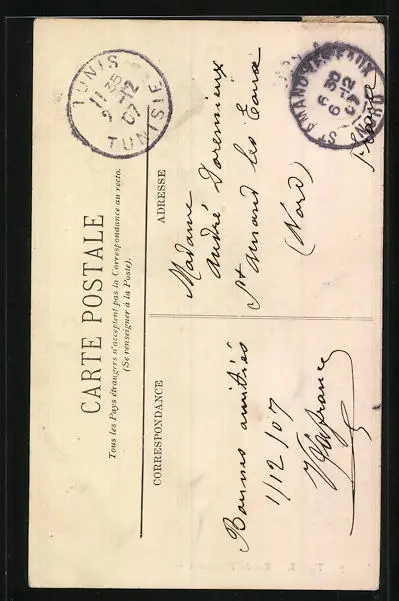 CARTE POSTALE
Tous les Pays étrangers n'acceptent pas la Correspondance au recto.
(Se renseigner à la Poste).
CORRESPONDANCE
ADRESSE
Bonnes amitiés
1/12/07
Madame
André
St Amand les Eaux
(Nord)
TUNIS
11 35
9 -12
07
TUNISIE
ST AMAND-LES-EAUX
6 30
6 -12
07
NORD